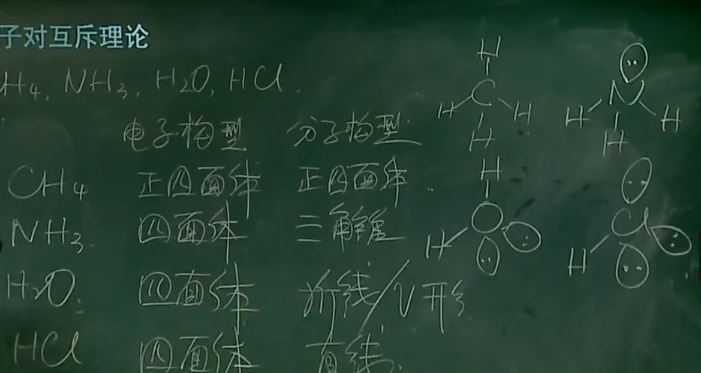 子对互斥理论
H₄, NH₃, H₂O, HCl.
电子构型 分子构型
CH₄ 正四面体 正四面体.
NH₃. 四面体 三角锥
H₂O. 四面体 折线/V形.
HCl 四面体 直线.
H
C
H H
H
N
H H
H
H
O
H
Cl
H